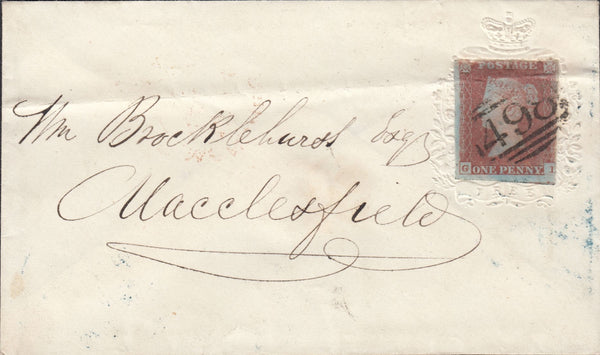 POSTAGE
498
G I
ONE PENNY.
Wm Brocklehurst Esq
Macclesfield